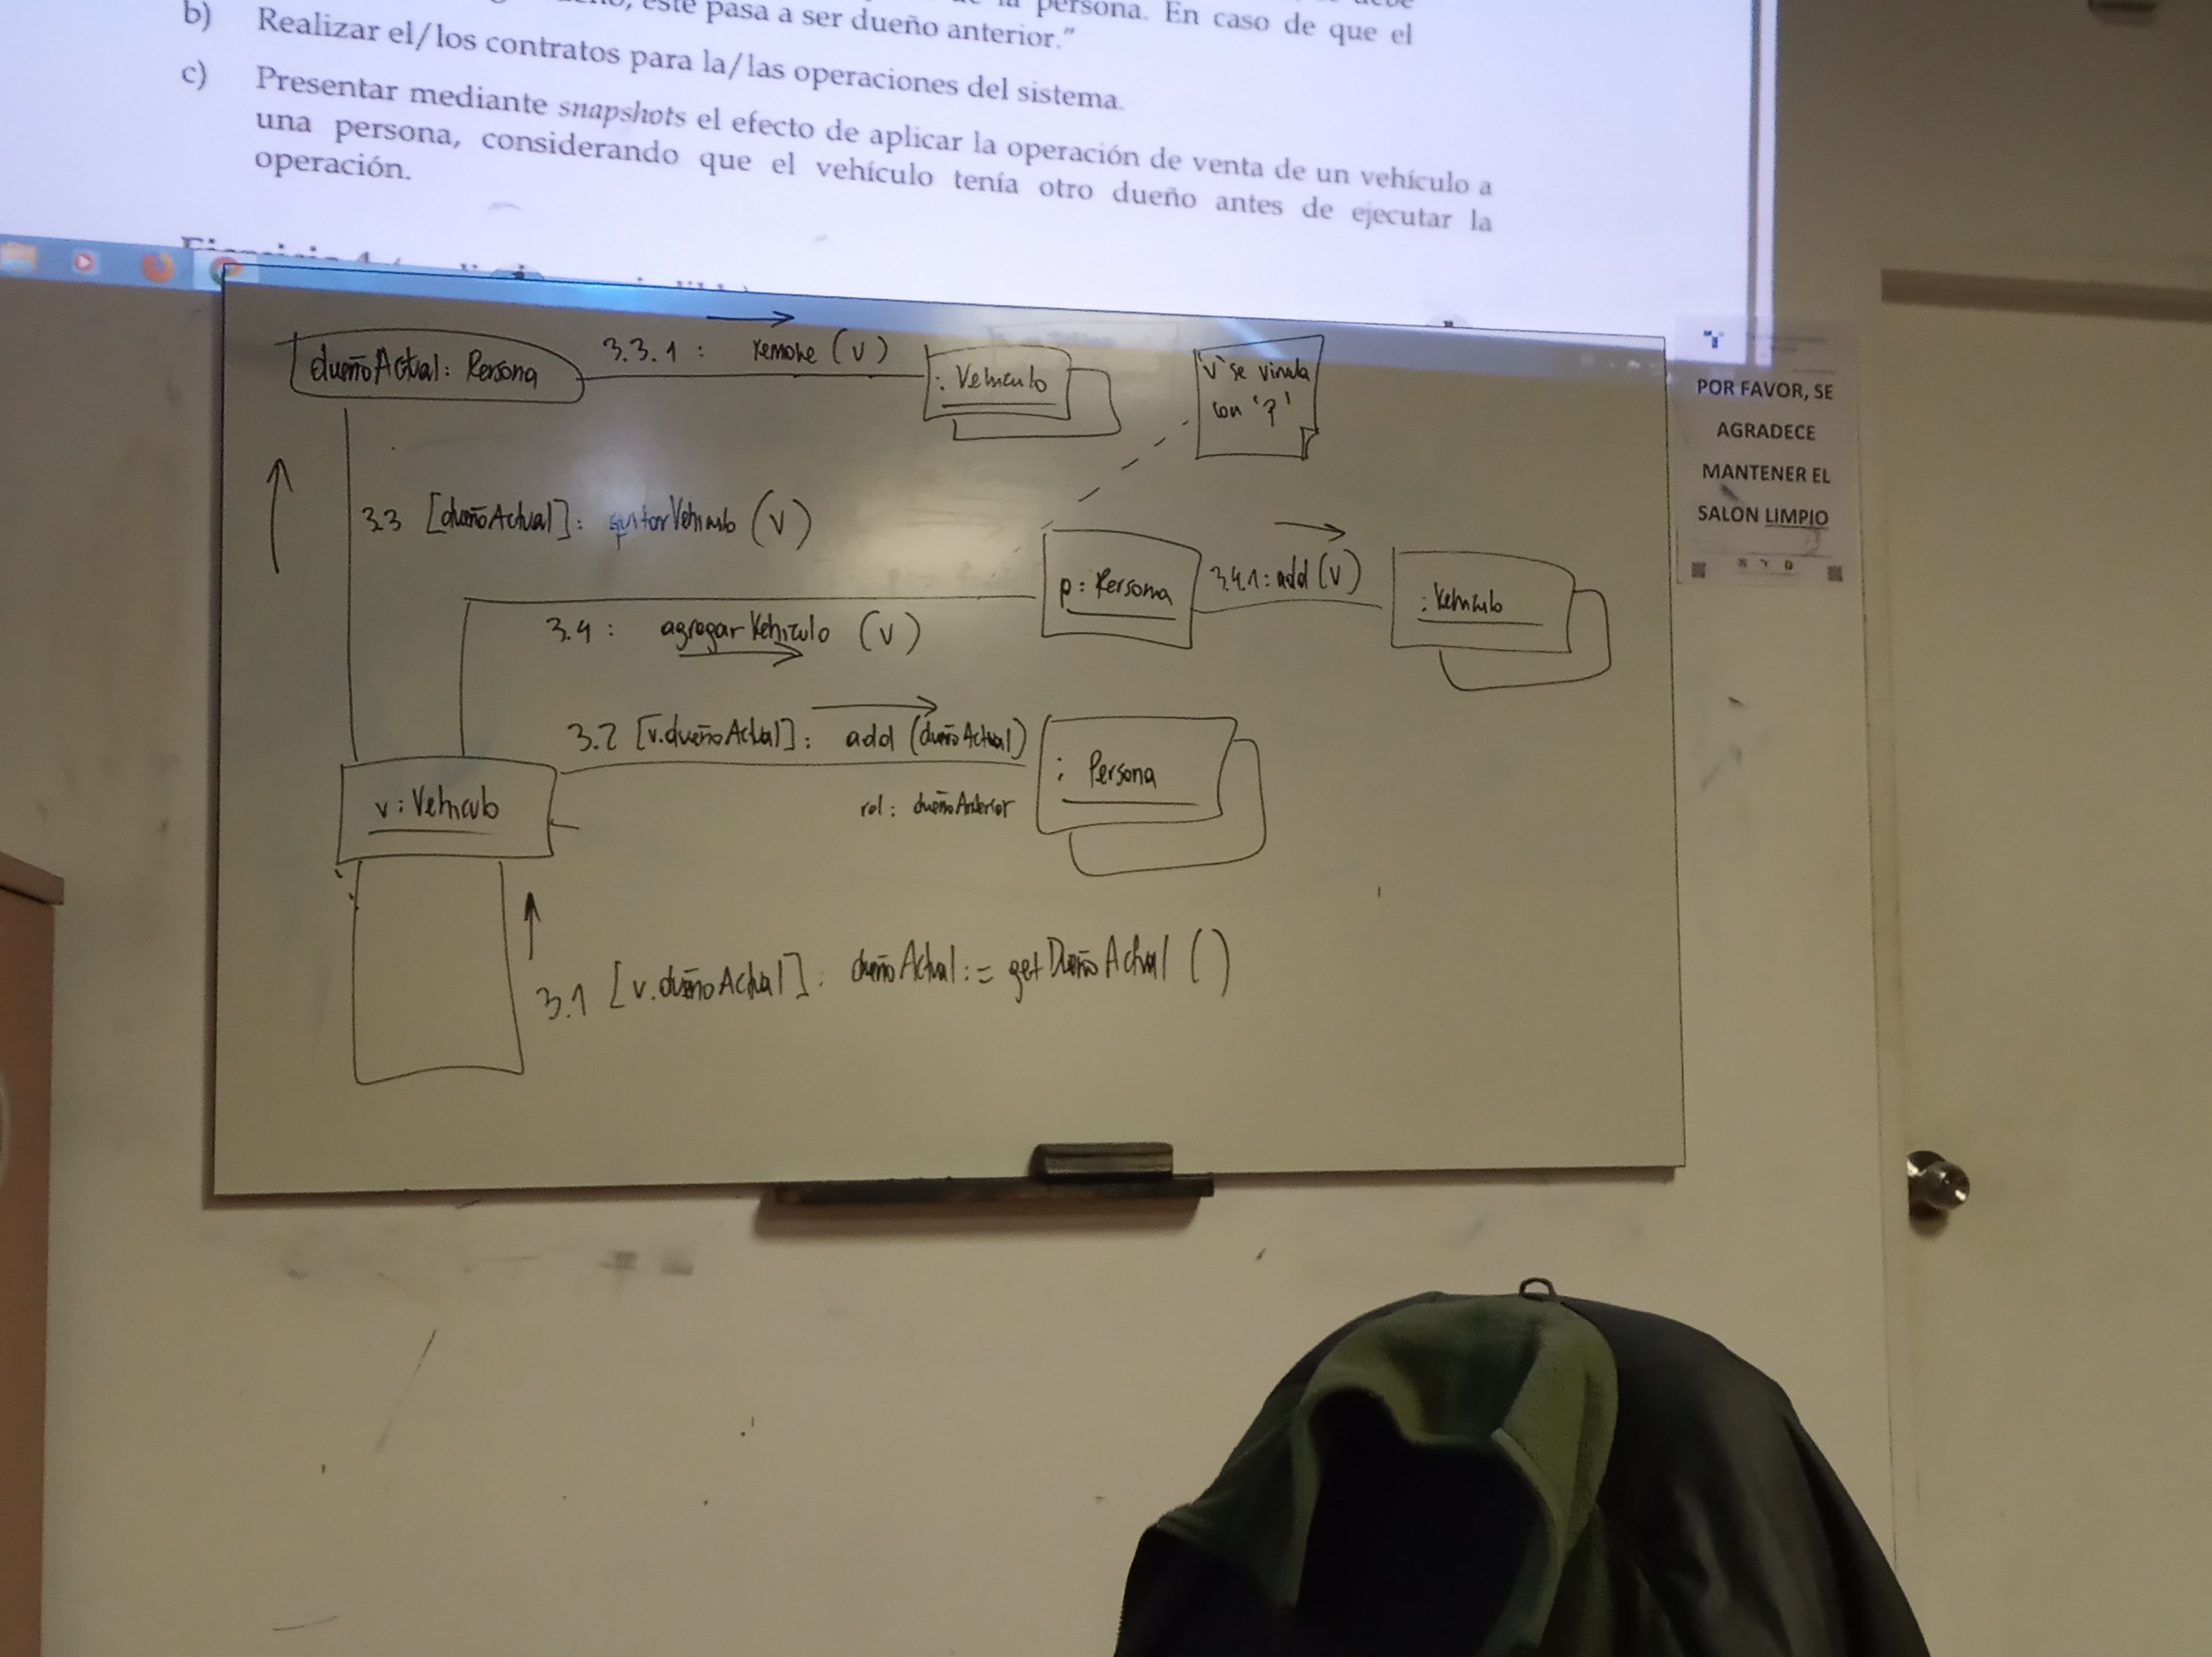 persona. En caso de que el
este pasa a ser dueño anterior."
b) Realizar el/los contratos para la/las operaciones del sistema.
c) Presentar mediante snapshots el efecto de aplicar la operación de venta de un vehículo a
una persona, considerando que el vehículo tenía otro dueño antes de ejecutar la
operación.
dueñoActual: Persona
3.3.1: remove (v)
: Vehiculo
'v' se vincula
con 'p'
3.3 [dueñoActual]: quitarVehiculo (v)
p: Persona
3.4.1: add (v)
: Vehiculo
3.4: agregarVehiculo (v)
3.2 [v.dueñoActual]: add (dueñoActual)
: Persona
rol: dueñoAnterior
v: Vehiculo
3.1 [v.dueñoActual]: dueñoActual := getDueñoActual ()
POR FAVOR, SE
AGRADECE
MANTENER EL
SALÓN LIMPIO